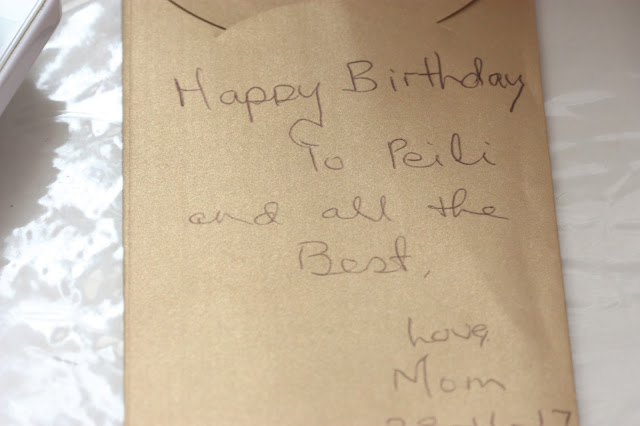 Happy Birthday
To Peili
and all the
Best,
Love
Mom